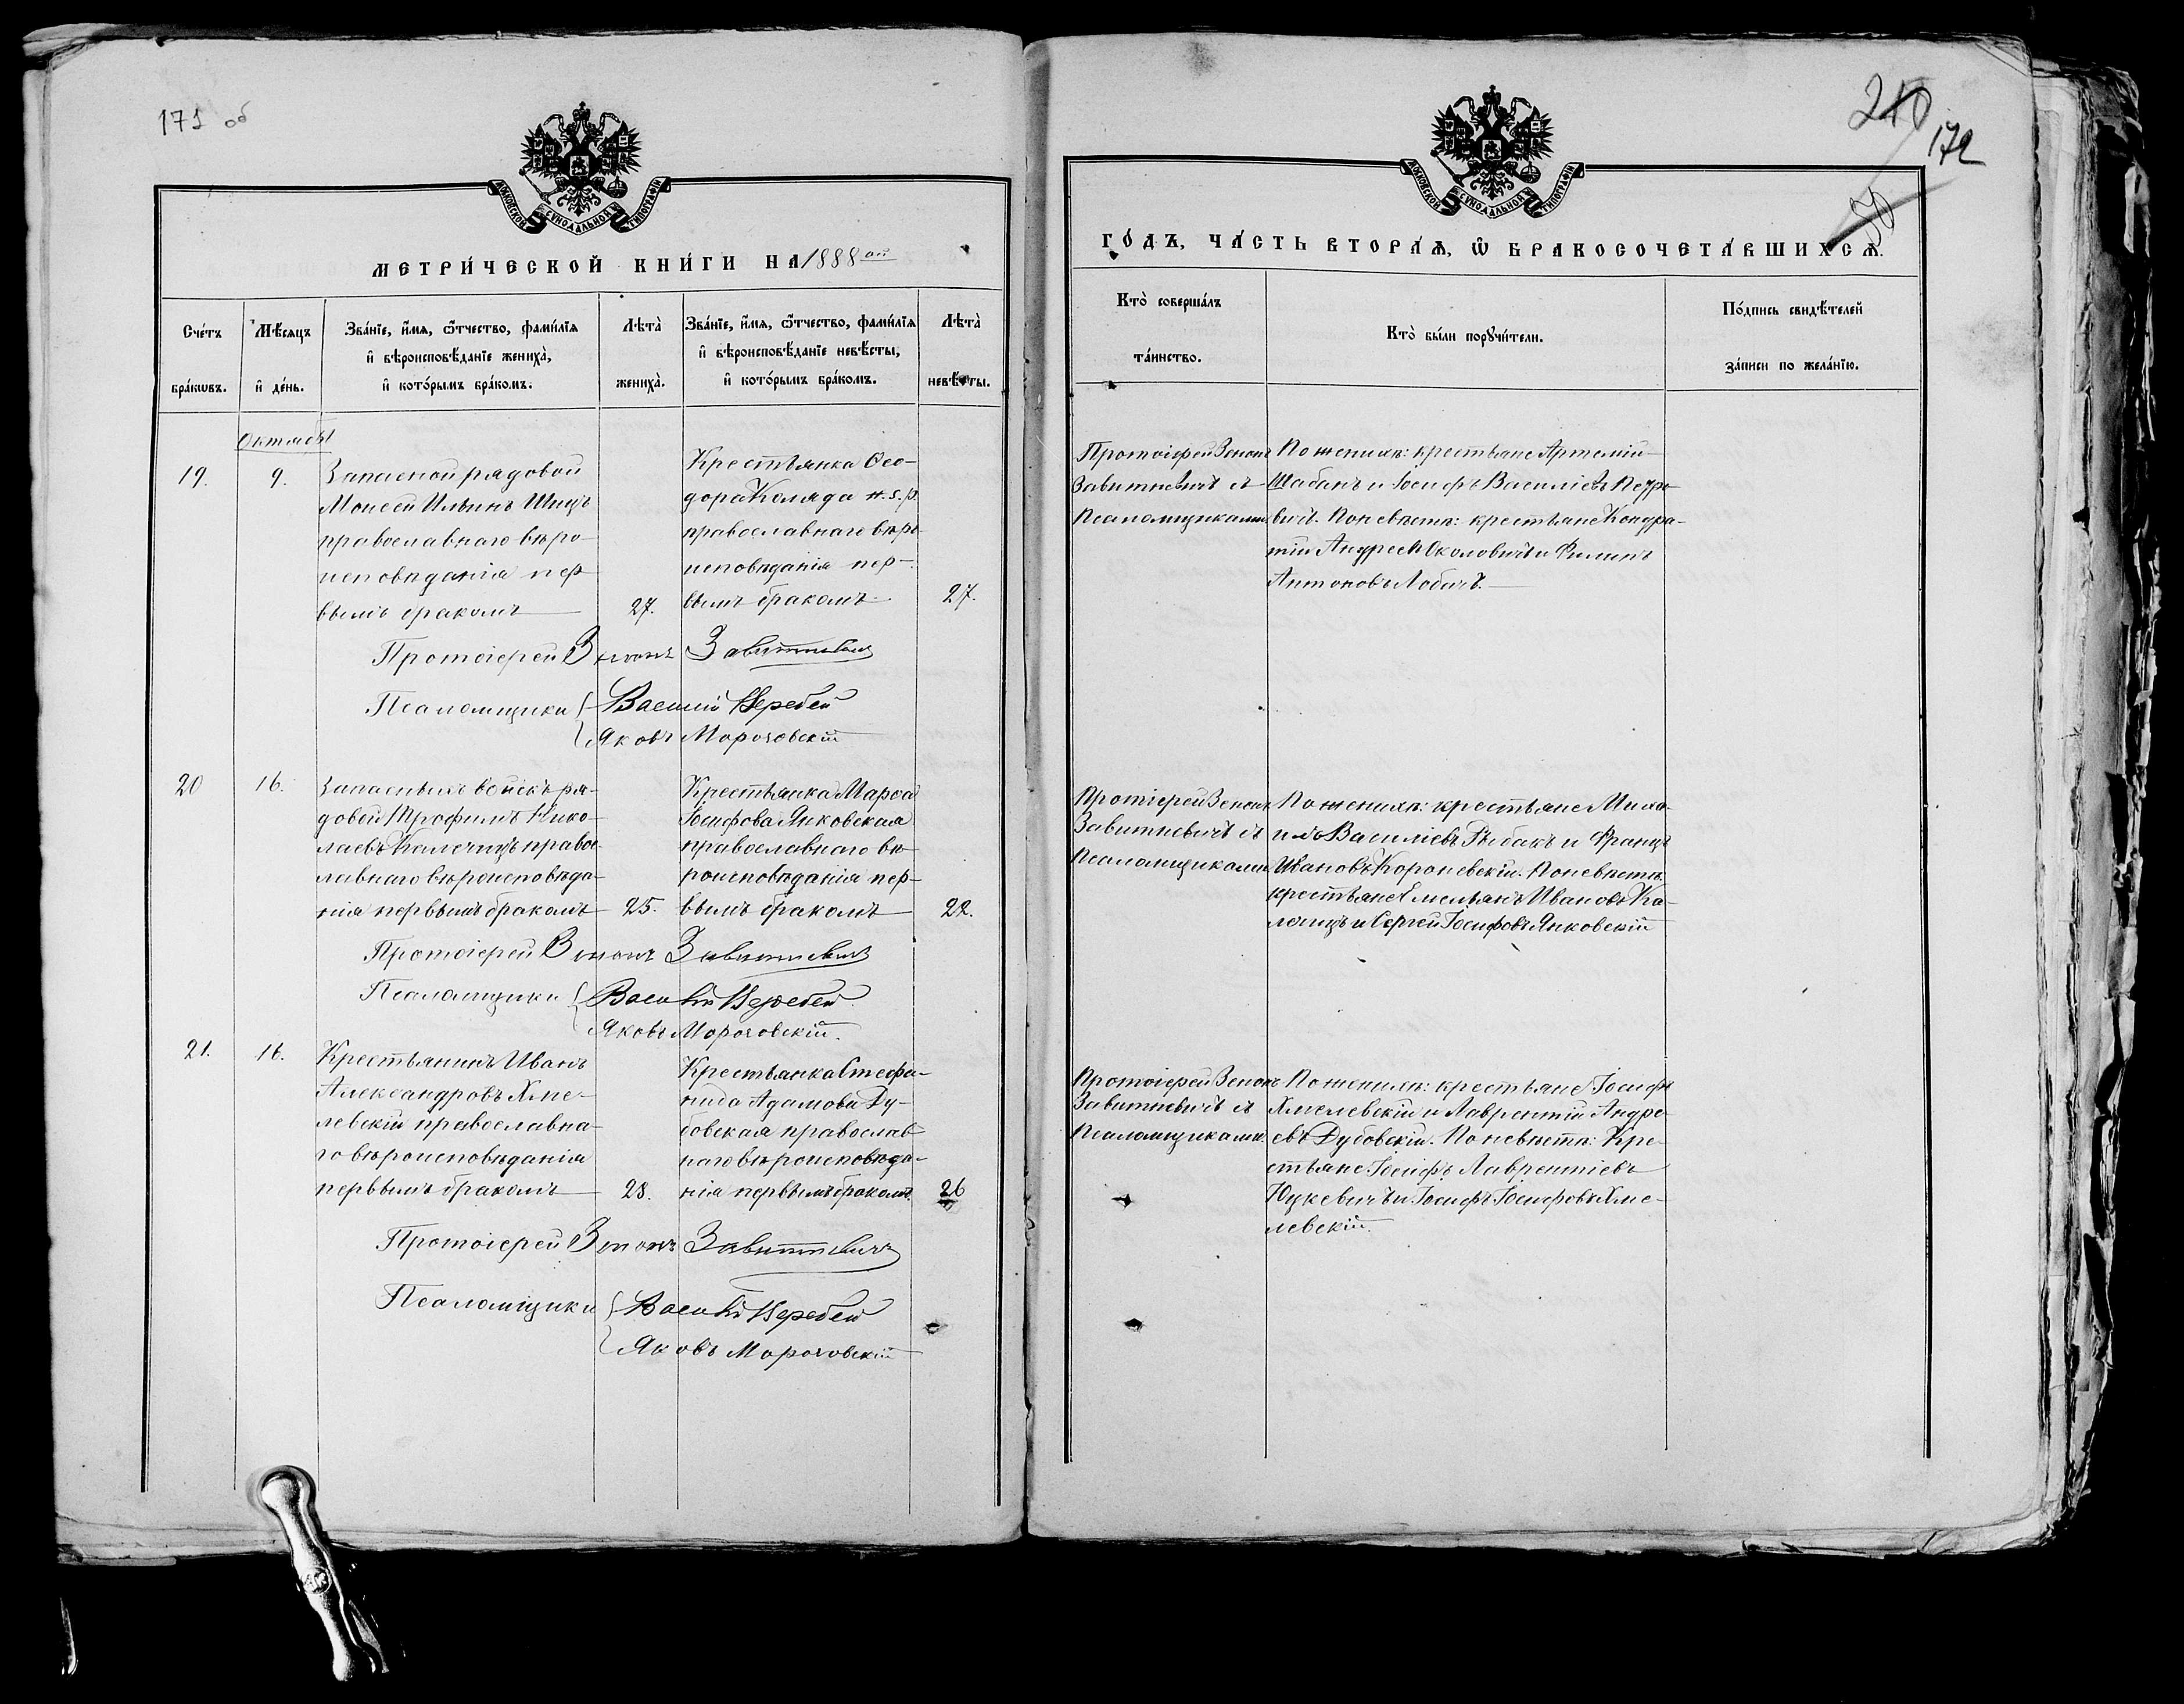 171 об
МОСКОВСКОЙ СѴНОДАЛЬНОЙ ТИПОГРАФІИ
МЕТРИ́ЧЕСКОЙ КНИ́ГИ НА 1888 ой
Сче́тъ бра́кѡвъ.
Мѣ́сяцъ и҆ де́нь.
Зва́нїе, и҆́мя, ѻ҆́тчество, фами́лїя
и҆ вѣроисповѣ́данїе жениха̀,
и҆ кото́рымъ бра́комъ.
Лѣта̀ жениха̀.
Зва́нїе, и҆́мя, ѻ҆́тчество, фами́лїя
и҆ вѣроисповѣ́данїе невѣ́сты,
и҆ кото́рымъ бра́комъ.
Лѣта̀ невѣ́сты.
Октябрь
19.
9.
Запасной рядовой
Моисей Ильинъ Шицъ
православнаго вѣро
исповѣданія пер
вымъ бракомъ
27.
Крестьянка Ѳео-
дора Коляда
православнаго вѣро
исповѣданія пер-
вымъ бракомъ
27.
Протоіерей Зенонъ Завитневичъ
Псаломщики Василій Веребей
Яковъ Морочовскій
20
16.
Запасныхъ войскъ ря-
довой Трофимъ Нико-
лаевъ Калечицъ правос
лавнаго вѣроисповѣда-
нія первымъ бракомъ
25.
Крестьянка Марѳа
Іосифова Янковская
православнаго вѣ
роисповѣданія пер-
вымъ бракомъ
22.
Протоіерей Зенонъ Завитневичъ
Псаломщики Василій Веребей
Яковъ Морочовскій.
21.
16.
Крестьянинъ Иванъ
Александровъ Хме-
левскій православна-
го вѣроисповѣданія
первымъ бракомъ
28.
Крестьянка Стефа-
нида Адамова Ду-
бовская православ
наго вѣроисповѣда-
нія первымъ бракомъ
26
Протоіерей Зенонъ Завитневичъ
Псаломщики Василій Веребей
Яковъ Морочовскій
210
172
50
МОСКОВСКОЙ СѴНОДАЛЬНОЙ ТИПОГРАФІИ
ГО́ДЪ, ЧА́СТЬ ВТОРА́Я, Ѽ БРАКОСОЧЕТА́ВШИХСЯ.
Кто̀ соверша́лъ
та́инство.
Кто̀ бы́ли порꙋчи́тели.
По́дпись свидѣ́телей
за́писи по жела́нїю.
Протоіерей Зенонъ
Завитневичъ съ
Псаломщиками
По женихѣ: крестьяне Артемій
Шабанъ и Іосифъ Василіевъ Петро
вичъ. По невѣстѣ: крестьяне Кондра-
тій Андреевъ Околовичъ и Филипъ
Антоновъ Лобачъ.
Протіерей Зенонъ
Завитневичъ съ
Псаломщиками
По женихѣ: крестьяне Миха-
илъ Василіевъ Рыбакъ и Францъ
Ивановъ Короневскій. По невѣстѣ
крестьяне Емельянъ Ивановъ Ка-
лечицъ и Сергей Іосифовъ Янковскій
Протоіерей Зенонъ
Завитневичъ съ
Псаломщиками.
По женихѣ: крестьяне Іосифъ
Хмелевскій и Лаврентій Андре
евъ Дубовскій. По невѣстѣ: Кре-
стьяне Іосифъ Лаврентіевъ
Юцкевичъ и Іосифъ Іосифовъ Хме-
левскій.